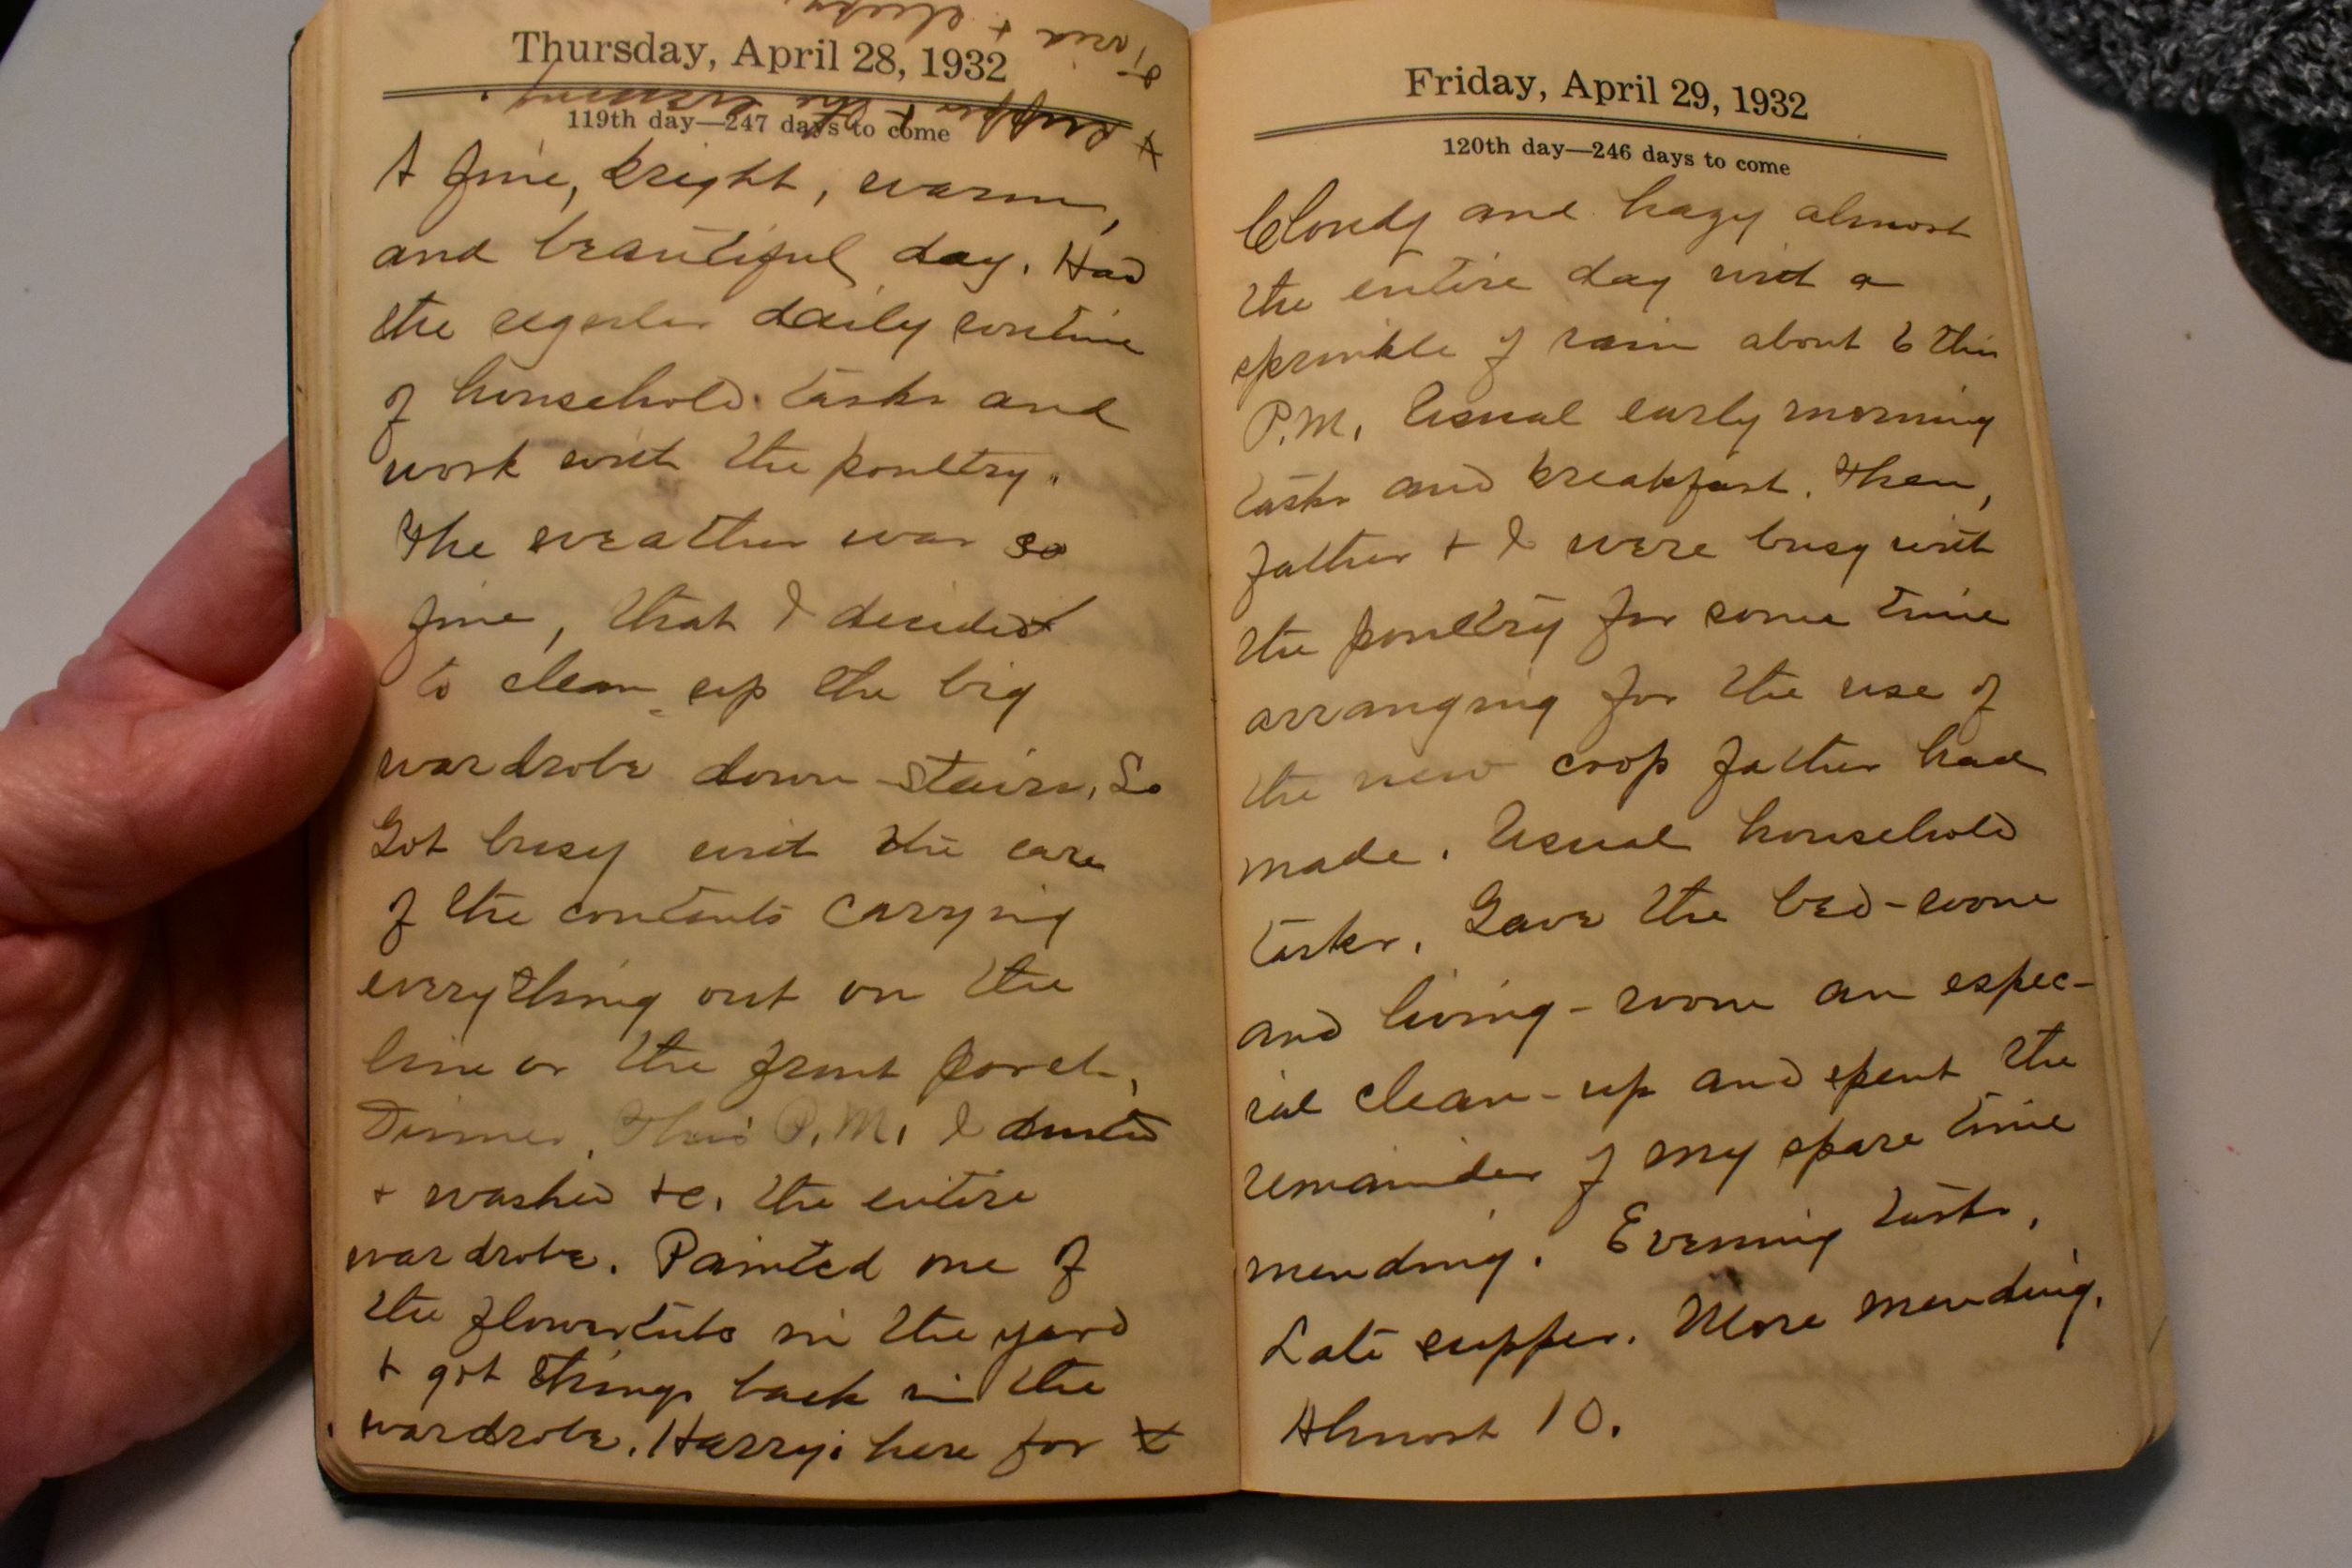 Thursday, April 28, 1932
119th day—247 days to come
A fine, bright, warm,
and beautiful day. Had
the regular daily routine
of household tasks and
work with the poultry.
The weather was so
fine, that I decided
to clean up the big
wardrobe down-stairs, So
Got busy with the care
of the contents carrying
everything out on the
line or the front porch,
Dinner, This P.M. I dusted
+ washed +c. the entire
wardrobe. Painted one of
the flowertubs in the yard
+ got things back in the
wardrobe. Harry: here for X
X supper + the evening.
Tired + sleepy.
Friday, April 29, 1932
120th day—246 days to come
Cloudy and hazy almost
the entire day with a
sprinkle of rain about 6 this
P.M. Usual early morning
tasks and breakfast. Then,
father + I were busy with
the poultry for some time
arranging for the use of
the new coop father had
made. Usual household
tasks. Gave the bed-room
and living-room an espec-
ial clean-up and spent the
remainder of my spare time
mending. Evening tasks.
Late supper. More mending.
Almost 10.